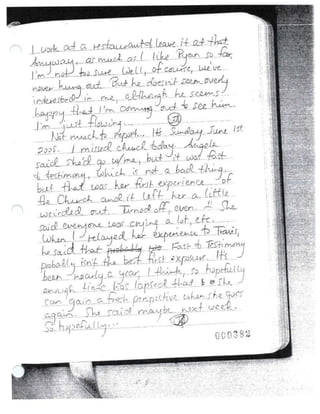 I work at a restaurant & leave it at that.
Anyway, as much as I like Ryan so far,
I'm not too sure. Well, of course, we've
never hung out. But he doesn't seem overly
interested in me, although he seems
happy that I'm coming out to see him.
I'm just flowing...
Not much to report... It's Sunday June 1st
2008. I missed church today. Angela
said she'd go w/me, but it was fast
& testimony, which is not a bad thing,
but that was her first experience of
the Church and it left her a little
weirded out. Turned off, even. She
said everyone was crying a lot, etc.
When I relayed her experience to Travis,
he said that Fast & Testimony
pobably isn't the best first exposure. It's
been nearly a year, I think, so hopefully
enough time has lapsed that she
can gain a fresh perspective when she goes
again. She said maybe next week.
So hopefully...
000382